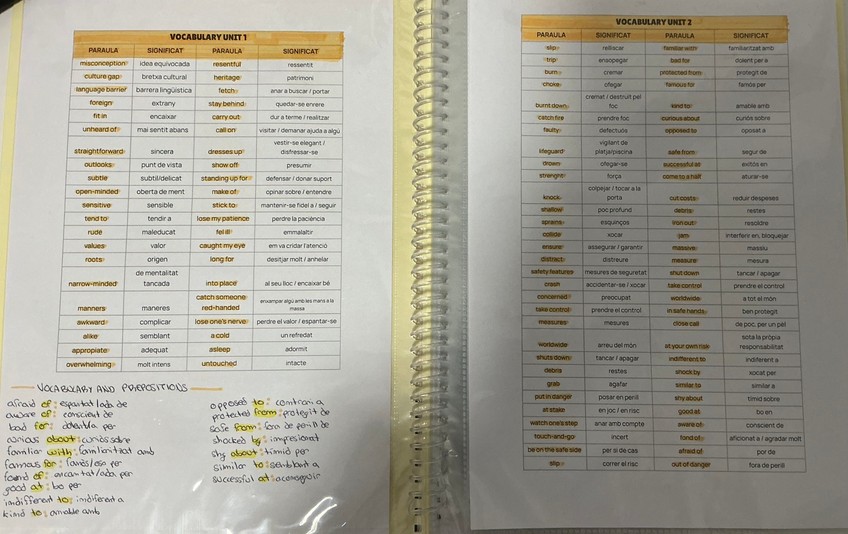 VOCABULARY UNIT 1
PARAULA SIGNIFICAT PARAULA SIGNIFICAT
misconception idea equivocada resentful ressentit
culture gap bretxa cultural heritage patrimoni
language barrier barrera lingüística fetch anar a buscar / portar
foreign extrany stay behind quedar-se enrere
fit in encaixar carry out dur a terme / realitzar
unheard of mai sentit abans call on visitar / demanar ajuda a algú
straightforward sincera dresses up vestir-se elegant / disfressar-se
outlooks punt de vista show off presumir
subtle subtil/delicat standing up for defensar / donar suport
open-minded oberta de ment make of opinar sobre / entendre
sensitive sensible stick to mantenir-se fidel a / seguir
tend to tendir a lose my patience perdre la paciència
rude maleducat fell ill emmalaltir
values valor caught my eye em va cridar l'atenció
roots origen long for desitjar molt / anhelar
narrow-minded de mentalitat tancada into place al seu lloc / encaixar bé
manners maneres catch someone red-handed enxampar algú amb les mans a la massa
awkward complicar lose one's nerve perdre el valor / espantar-se
alike semblant a cold un refredat
appropiate adequat asleep adormit
overwhelming molt intens untouched intacte
VOCABULARY AND PREPOSITIONS
afraid of: espantat/ada de
aware of: conscient de
bad for: dolent/a per
curious about: curiós sobre
familiar with: familiaritzat amb
famous for: famós/osa per
found of: encantat/ada per
good at: bo per
indifferent to: indiferent a
kind to: amable amb
opposed to: contrari a
protected from: protegit de
safe from: fora de perill de
shocked by: impresionat
shy about: tímid per
similar to: semblant a
successful at: aconseguir
VOCABULARY UNIT 2
PARAULA SIGNIFICAT PARAULA SIGNIFICAT
slip relliscar familiar with familiaritzat amb
trip ensopegar bad for dolent per a
burn cremar protected from protegit de
choke ofegar famous for famós per
burnt down cremat / destruït pel foc kind to amable amb
catch fire prendre foc curious about curiós sobre
faulty defectuós opposed to oposat a
lifeguard vigilant de platja/piscina safe from segur de
drown ofegar-se successful at exitós en
strenght força come to a halt aturar-se
knock colpejar / tocar a la porta cut costs reduir despeses
shallow poc profund debris restes
sprains esquinços iron out resoldre
collide xocar jam interferir en, bloquejar
ensure assegurar / garantir massive massiu
distract distreure measure mesura
safety features mesures de seguretat shut down tancar / apagar
crash accidentar-se / xocar take control prendre el control
concerned preocupat worldwide a tot el món
take control prendre el control in safe hands ben protegit
measures mesures close call de poc, per un pel
worldwide arreu del món at your own risk sota la pròpia responsabilitat
shuts down tancar / apagar indifferent to indiferent a
debris restes shock by xocat per
grab agafar similar to similar a
put in danger posar en perill shy about tímid sobre
at stake en joc / en risc good at bo en
watch one's step anar amb compte aware of conscient de
touch-and-go incert fond of aficionat a / agradar molt
be on the safe side per si de cas afraid of por de
slip córrer el risc out of danger fora de perill